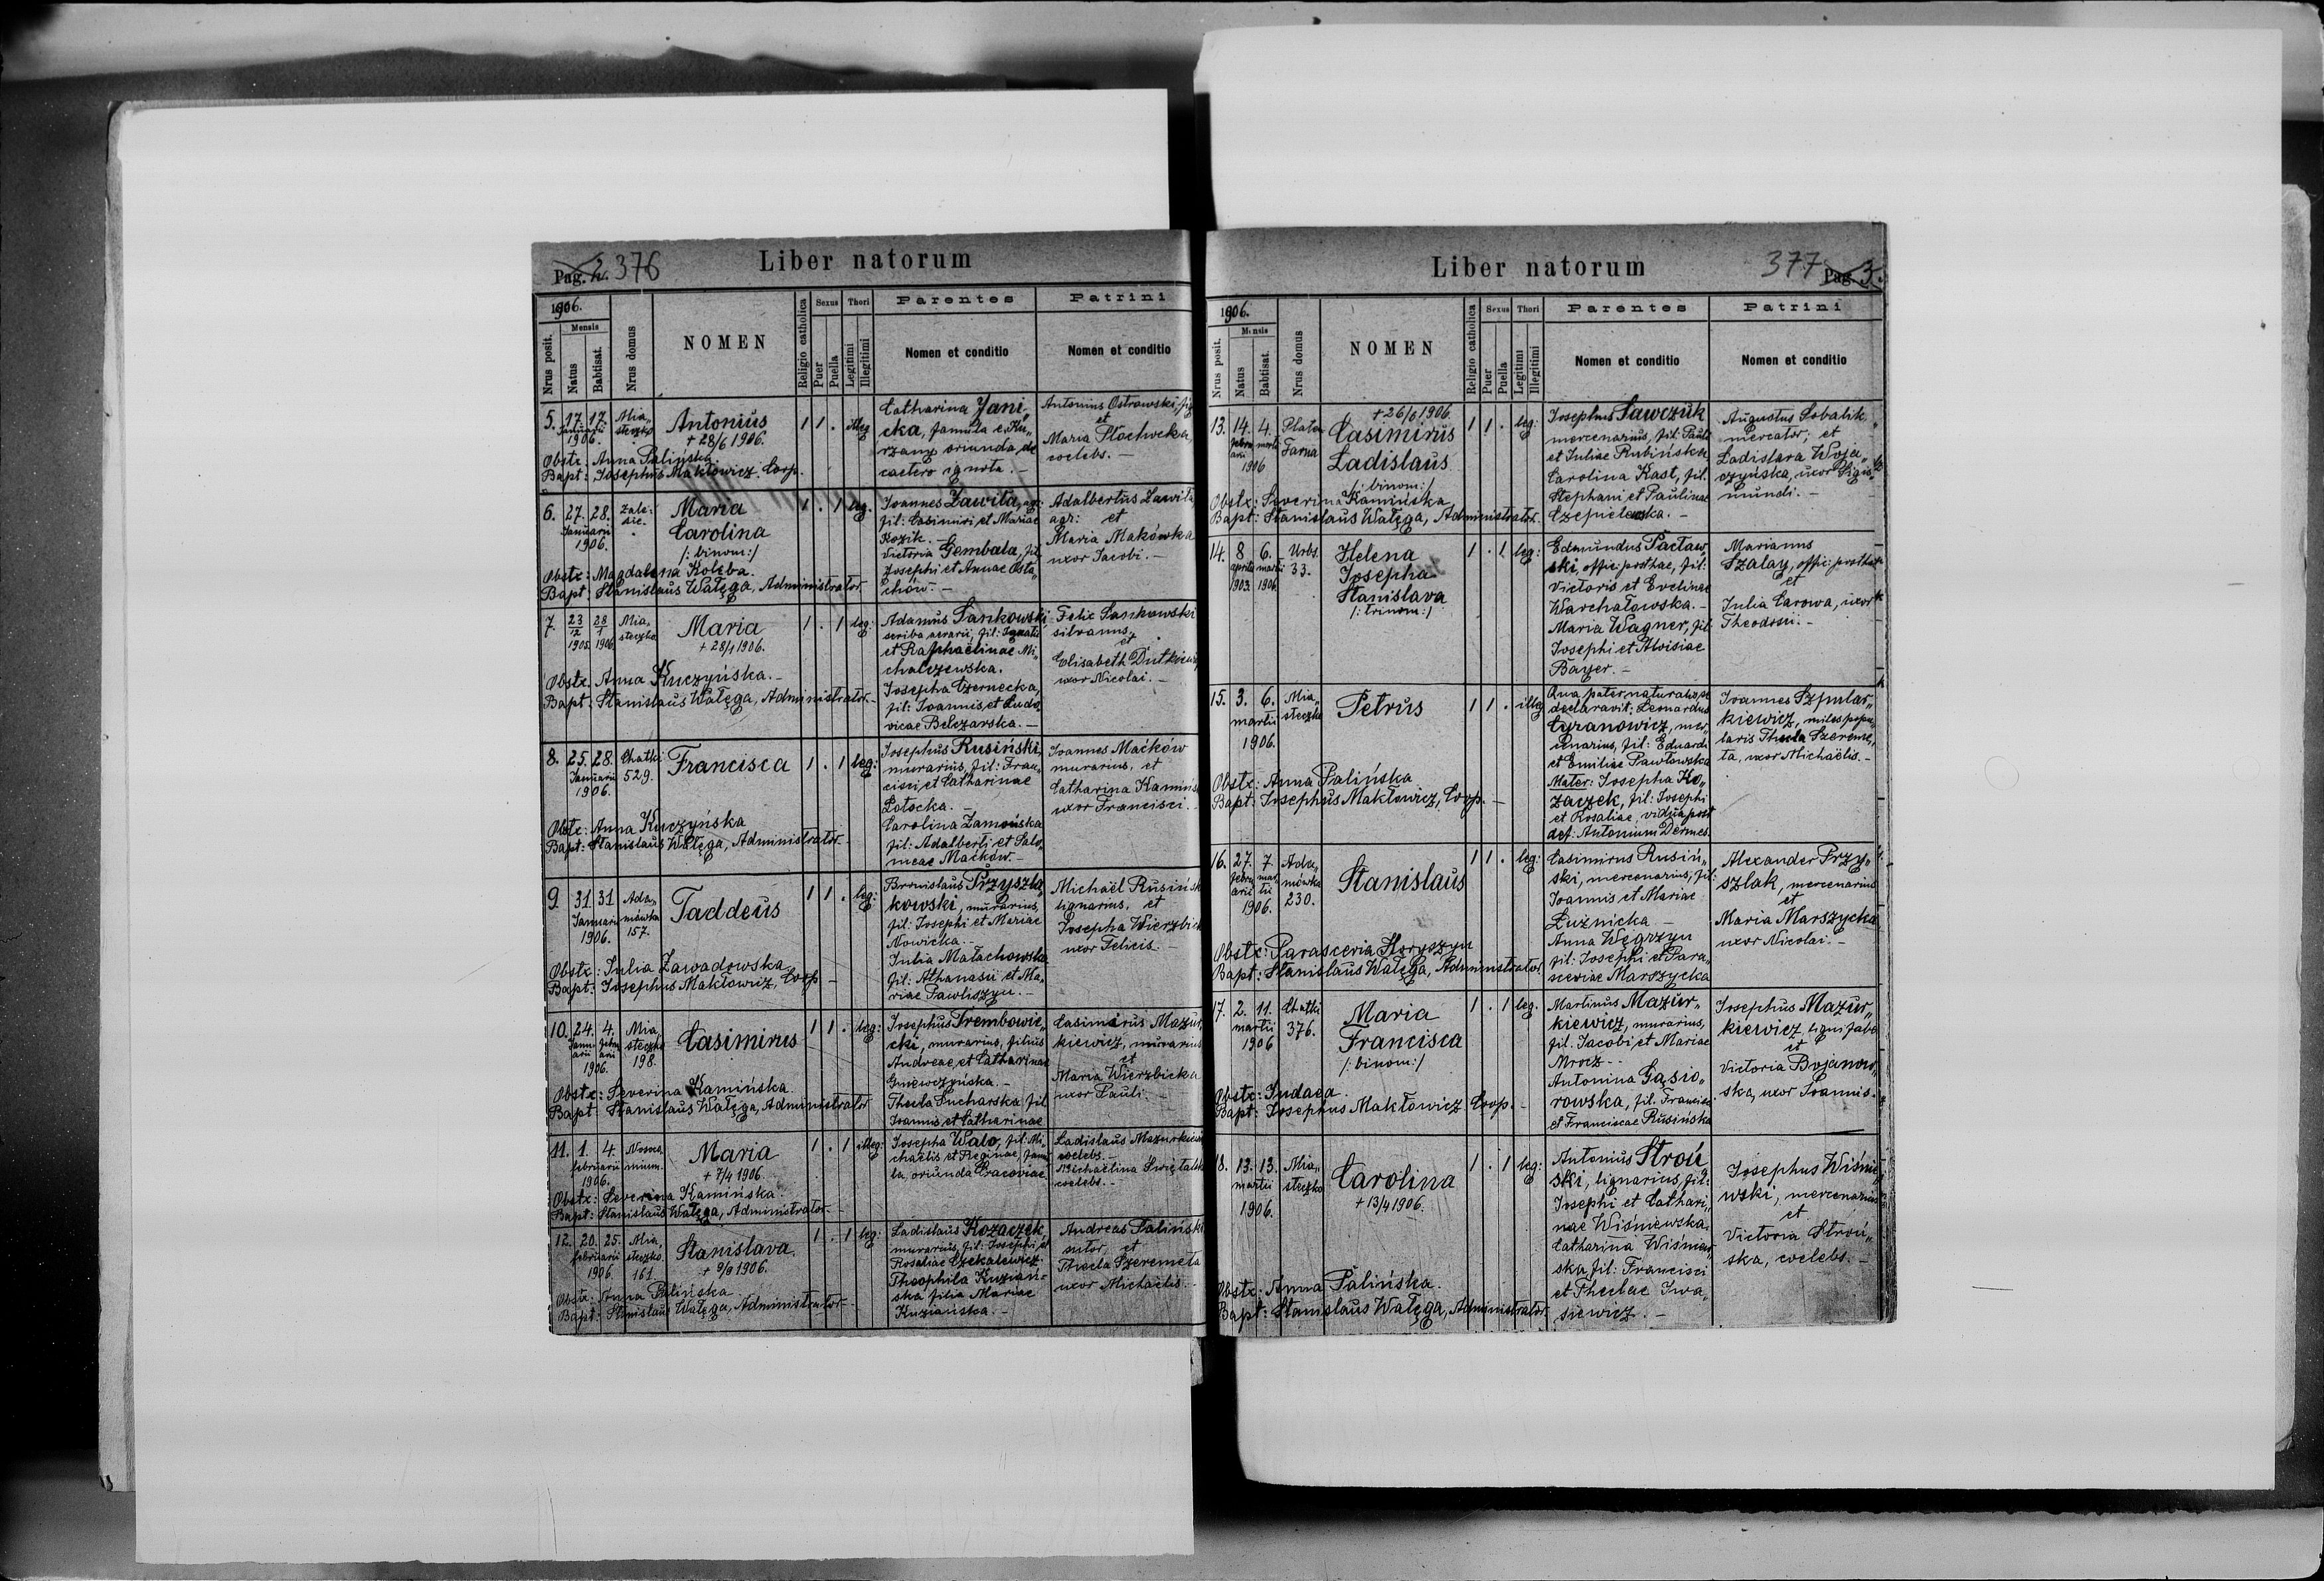 Pag. 2. 376
Liber natorum
1906.
Nrus posit.
Mensis
Natus
Babtisat.
Nrus domus
NOMEN
Religio catholica
Sexus
Puer
Puella
Thori
Legitimi
Illegitimi
Parentes
Nomen et conditio
Patrini
Nomen et conditio
5. 17. 17. Mia„
Januarii steczko
1906.
Antonius
+ 28/6 1906.
1 1 . illeg
Catharina Jani„
cka, famula e Ku„
rzany oriunda, de
caetero ignota. —
Antonius Ostrowski,
et
Maria Stochwcka,
coelebs. —
Obstr: Anna Palińska.
Bapt: Josephus Makłowicz Coop.
6. 27. 28. Zale„
Januarii sie.
1906.
Maria
Carolina
/: binom:/
1 . 1 leg.
Joannes Zawiła, agr:
fil: Casimiri et Mariae
Kozik. —
Victoria Gembala, fil:
Josephi et Annae Osta„
chów. —
Adalbertus Zawiła,
agr: et
Maria Makówka
uxor Jacobi. —
Obstr: Magdalena Koleba.
Bapt: Stanislaus Wałęga, Administrator
7. 23/12 28/1 Mia„
1905. 1906. steczko
Maria
+ 28/1 1906.
1 . 1 leg:
Adamus Sankowski,
scriba aerarii, fil: Ignatii
et Raphaëlinae Mi„
chalczewska.
Josepha Czernecka,
fil: Joannis et Ludo„
vicae Belczarska. —
Felix Sankowski
silvanus,
et
Elisabeth Dutkiewicz
uxor Nicolai. —
Obstr. Anna Kuczyńska. —
Bapt: Stanislaus Wałęga, Administrator. —
8. 25. 28. Chatki
Januarii 529.
1906.
Francisca
1 . 1 leg:
Josephus Rusiński,
murarius, fil: Fran„
cisci et Catharinae
Potocka. —
Carolina Zamońska
fil: Adalberti et Salo„
meae Maćków. —
Joannes Maćków
murarius, et
Catharina Kamińs
uxor Francisci. —
Obstr: Anna Kuczyńska
Bapt: Stanislaus Wałęga, Administrator. —
9. 31. 31 Ada„
Januarii mówka
1906. 157.
Taddeus
1 1 . leg:
Bronislaus Przyszla„
kowski, murarius,
fil: Josephi et Mariae
Nowicka. —
Julia Małachowska
fil: Athanasii et Ma„
riae Pawliszyn. —
Michaël Rusińsk
lignarius, et
Josepha Wierzbick
uxor Felicis. —
Obstr: Julia Zawadowska
Bapt: Josephus Makłowicz, Coop —
10. 24. 4. Mia„
Janu„ febru„ steczko
arii arii 198.
1906.
Casimirus
1 1 . leg:
Josephus Trembowie„
cki, murarius, filius
Andreae, et Catharinae
Gniewczyńska. —
Thecla Sucharska fil
Joannis et Catharinae
Casimirus Mazur„
kiewicz, murarius
et
Maria Wierzbicka
uxor Pauli. —
Obstr: Severina Kamińska
Bapt: Stanislaus Wałęga, Administrator
11. 1. 4. Nosoco„
februarii mium.
1906.
Maria
+ 7/4 1906.
1 . 1 illeg:
Josepha Walo, fil: Mi„
chaëlis et Reginae, famu„
la, oriunda Cracoviae.
Ladislaus Mazurkiewi
coelebs. —
Michaëlina Świętalsk
coelebs. —
Obstr: Severina Kamińska.
Bapt: Stanislaus Wałęga, Administrator. —
12. 20. 25. Mia„
februarii steczko
1906. 161.
Stanislava.
+ 9/9 1906.
1 . 1 leg:
Ladislaus Kozaczek,
murarius, fil: Josephi et
Rosaliae Czekalewicz
Theophila Kuziań„
ska filia Mariae
Kuziańska. —
Andreas Paliński
sutor, et
Thecla Szeremeta
uxor Michaëlis. —
Obstr: Anna Palińska.
Bapt: Stanislaus Wałęga, Administrator. —
Liber natorum
377 Pag. 3.
1906.
Nrus posit.
Mensis
Natus
Babtisat.
Nrus domus
NOMEN
Religio catholica
Sexus
Puer
Puella
Thori
Legitimi
Illegitimi
Parentes
Nomen et conditio
Patrini
Nomen et conditio
13. 14. 4. Platea
febru„ martii Farna
arii
1906
+ 26/6 1906.
Casimirus
Ladislaus
/: binom:/
1 1 . leg:
Josephus Sawczuk
mercenarius, fil: Pauli
et Juliae Rubińska
Carolina Kast, fil.
Stephani et Paulinae
Czepielewska. —
Augustus Sobalik
mercator; et
Ladislava Woja„
czyńska, uxor Sigis„
mundi. —
Obstr: Severina Kamińska
Bapt: Stanislaus Wałęga, Administrator.
14. 8 6. Urbs.
aprilis martii 33.
1903. 1906.
Helena
Josepha
Stanislava
/: trinom:/
1 . 1. leg:
Edmundus Pacław„
ski, offic: posthae, fil:
Victoris et Evelinae
Warchałowska. —
Maria Wagner, fil
Josephi et Aloisiae
Bayer. —
Marianus
Szalay, offic: posthae
et
Julia Carowa, uxor
Theodosii. —
15. 3. 6. Mia„
martii steczko
1906.
Petrus
1 1 . illeg
Qua pater naturalis se
declaravit; Leonardus
Cyranowicz, mer„
cenarius, fil: Eduardi
et Emiliae Pawłowska
Mater: Josepha Ko„
zaczek, fil: Josephi
et Rosaliae, vidua post
def: Antonium Dermes.
Joannes Szpular„
kiewicz, miles popu„
laris Thecla Szereme„
ta, uxor Michaëlis. —
Obstr: Anna Palińska
Bapt: Josephus Makłowicz, Coop. —
16. 27. 7 Ada„
febru„ mar„ mówka
arii tii 230.
1906.
Stanislaus
1 1 . leg:
Casimirus Rusiń„
ski, mercenarius, fil:
Joannis et Mariae
Łuźnicka —
Anna Węgrzyn
fil: Josephi et Para„
sceviae Marszycka
Alexander Przy„
szlak, mercenarius
et
Maria Marszycka
uxor Nicolai. —
Obstr: Parascevia Horyszyn
Bapt: Stanislaus Wałęga, Administrator
17. 2. 11. Chatki
martii 376.
1906
Maria
Francisca
/: binom:/
1 . 1 leg.
Martinus Mazur„
kiewicz, murarius,
fil. Jacobi et Mariae
Mrocz. —
Antonina Gąsio„
rowska, fil. Francisci
et Franciscae Rusińska
Josephus Mazur„
kiewicz lignifaber
et
Victoria Bojanow„
ska, uxor Joannis. —
Obstr: Judaea.
Bapt: Josephus Makłowicz Coop. —
18. 13. 13. Mia„
martii steczko
1906.
Carolina
+ 13/4 1906.
1 . 1 leg:
Antonius Stroń„
ski, lignarius, fil:
Josephi et Cathari„
nae Wiśniewska.
Catharina Wiśniew„
ska, fil: Francisci
et Theclae Iwa„
siewicz. —
Josephus Wiśnie„
wski, mercenarius
et
Victoria Stroń„
ska, coelebs. —
Obstr: Anna Palińska.
Bapt: Stanislaus Wałęga, Administrator.